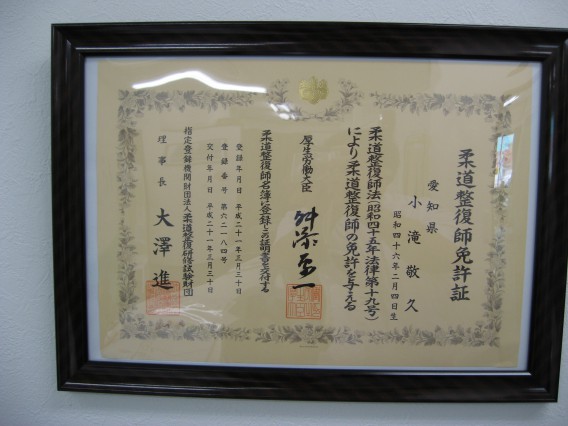 柔道整復師免許証
愛知県
小滝敬久
昭和四十六年二月四日生
柔道整復師法(昭和四十五年法律第十九号)
により柔道整復師の免許を与える
厚生労働大臣
舛添要一
柔道整復師名簿に登録しこの証明書を交付する
登録年月日 平成二十一年三月三十日
登録番号 第六二一八四号
交付年月日 平成二十一年三月三十日
指定登録機関財団法人柔道整復研修試験財団
理事長 大澤進